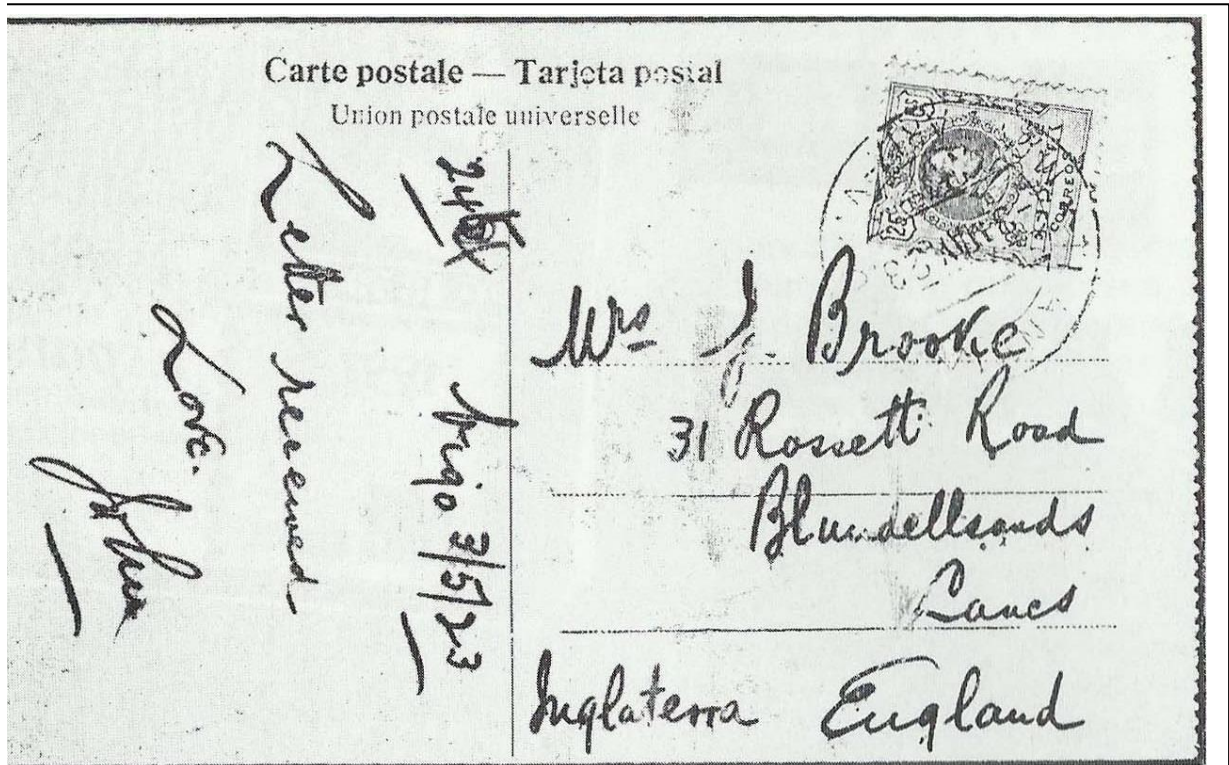 Carte postale — Tarjeta postal
Union postale universelle
Vigo 3/5/23
Letter received
Love.
John
CORREOS
25
Mrs J. Brooke
31 Rossett Road
Blundellsands
Lancs
Inglaterra England